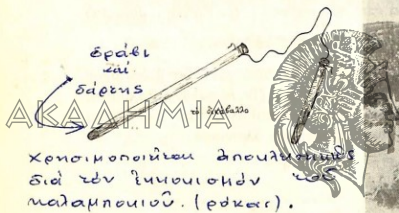 δράβι
καί
δάρτης
ΑΚΑΔΗΜΙΑ
τὸ
χρησιμοποιεῖται ἀποκλειστικῶς
διά τόν ἐκκοκισμόν τοῦ
καλαμποκιοῦ. (ρόκας).